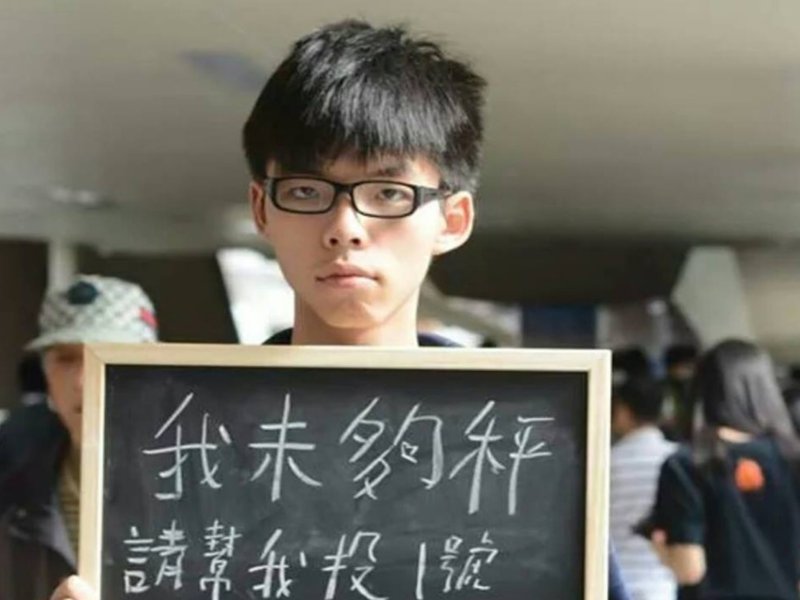 我未夠秤
請幫我投1號